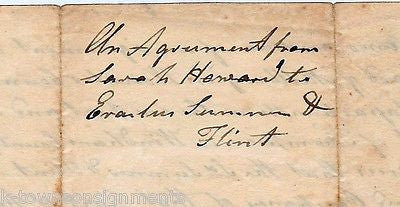 An Agrument from
Sarah Howard to
Erastus Sumner &
Flint
k-townconsignments